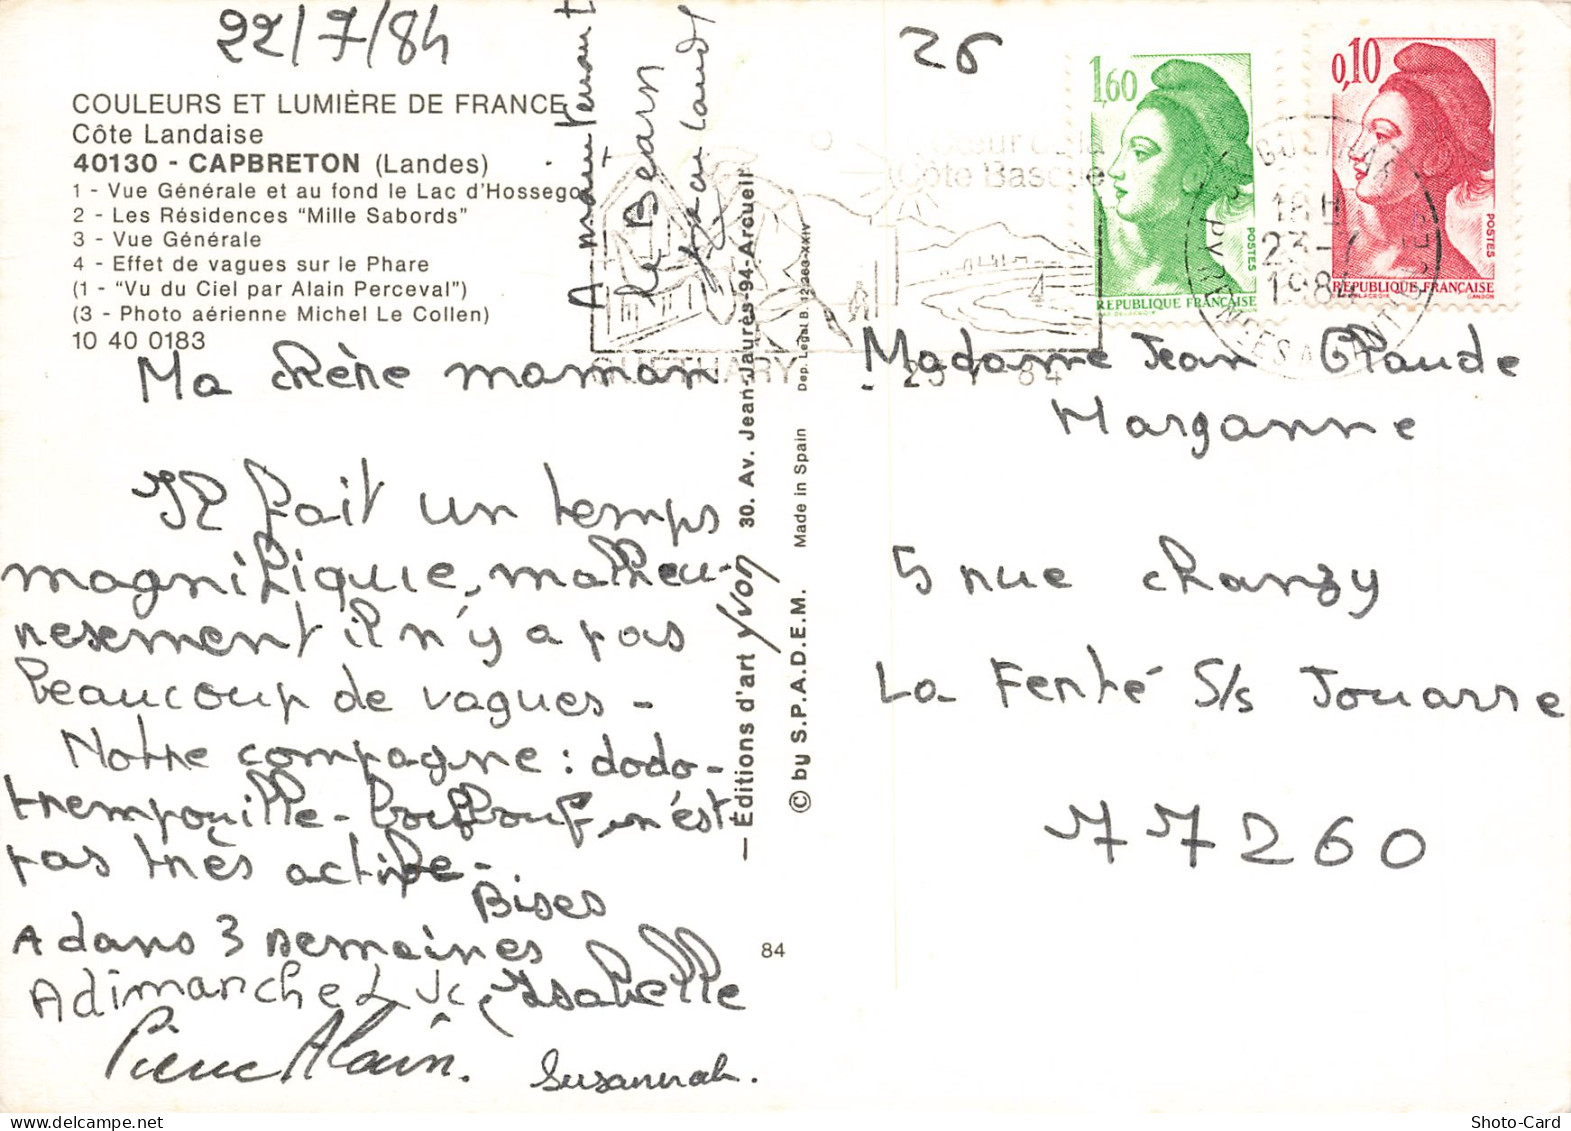 22/7/84
COULEURS ET LUMIÈRE DE FRANCE
Côte Landaise
40130 - CAPBRETON (Landes)
1 - Vue Générale et au fond le Lac d'Hossego
2 - Les Résidences "Mille Sabords"
3 - Vue Générale
4 - Effet de vagues sur le Phare
(1 - "Vu du Ciel par Alain Perceval")
(3 - Photo aérienne Michel Le Collen)
10 40 0183
Ma chère maman
Il fait un temps
magnifique, malheu-
reusement il n'y a pas
beaucoup de vagues -
Notre compagne : dodo-
trempouille - boufbouf, n'est
pas très active -
Bises
A dans 3 semaines
A dimanche Luc, Isabelle
Pierre Alain.
Susannah.
A maintenant
le Béarn
Jean Claude
— Éditions d'art Yvon 30. Av. Jean-Jaurès-94-Arcueil
© by S.P.A.D.E.M. Made in Spain Dep. Legal B. 12.263-XXIV
84
26
1,60
POSTES
REPUBLIQUE FRANÇAISE
0,10
POSTES
REPUBLIQUE FRANÇAISE
Cœur de la
Côte Basque
GUETHARY
23-7 84
GUETHARY
18H
23-7
1984
PYRENEES ATLANTIQUES
Madame Jean Claude
Marganne
5 rue Chanzy
La Ferté S/s Jouarre
77260
Shoto-Card